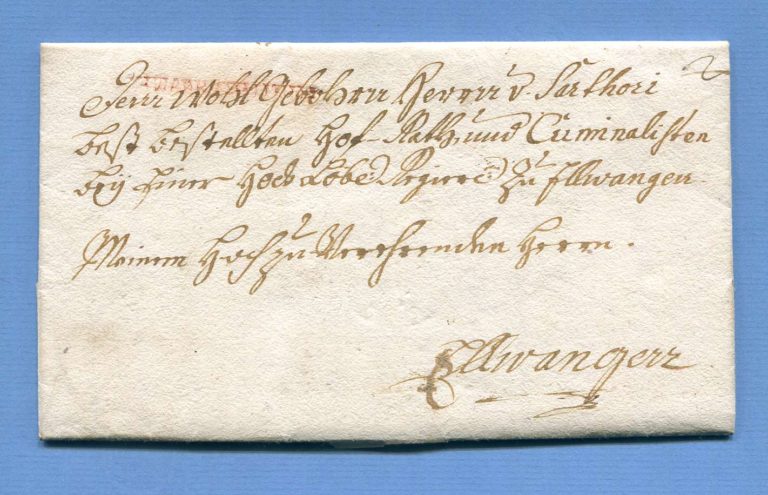 Herrn Wohl Gebohrn Herrn v. Sarthori
best bestellten Hof Rath und Criminalisten
bey Einer Hoch Lobl: Regier: zu Ellwangen
Meinem Hochzu Verehrenden Herrn.
Ellwangen